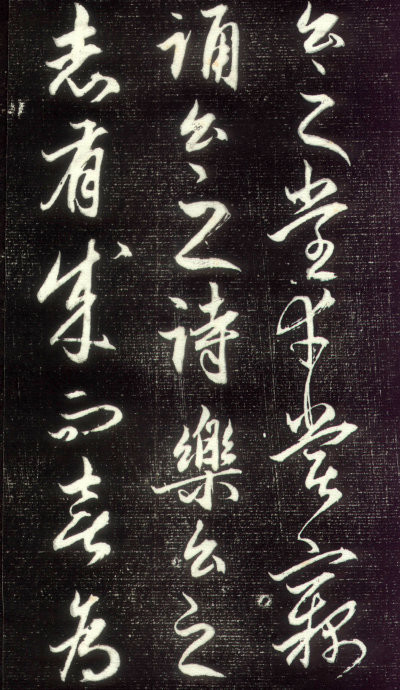 公之堂. 幸嘗竊
誦公之詩. 樂公之
志有成而喜為